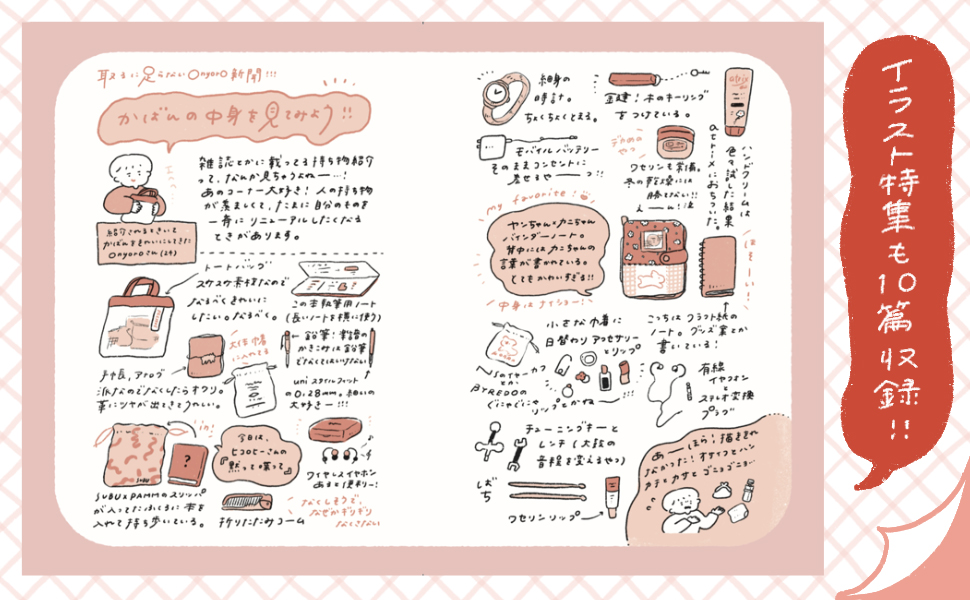 取るに足らないonyoro新聞!!!
かばんの中身を見てみよう!!
雑誌とかに載ってる持ち物紹介
って、なんか見ちゃうよね──!
あのコーナー大好き! 人の持ち物
が羨ましくて、たまに自分のものを
一斉にリニューアルしたくなる
ときがあります。
紹介されるときいて
かばんをきれいにしてきた
onyoroさん(24)
トートバッグ
スケスケ素材なので
なるべくきれいに
したい。なるべく。
この本執筆用ノート
(長いノートを横に使う)
手帳、アナログ
派なのでなくしたらオワリ。
革にツヤが出てきてうれしい。
大体巾着
に入れてる
← 鉛筆! 楽譜の
かきこみは鉛筆
でなくてはいけない
uni スタイルフィット
の0.28mm。細いの
大好き──!!!
in!
SUBU×PAMMのスリッパ
が入ってたふくろに本を
入れて持ち歩いている。
?
今日は、
ヒコロヒーさんの
『黙って喋って』
折りたたみコーム
ワイヤレスイヤホン
あると便利ー!
なくしそうで、
なぜかギリギリ
なくさない
細身の
時計。
ちょくちょくとまる。
金建! 木のキーリング
をつけている。
atrix
ハンドクリームは
色々試した結果
atrixにおちついた。
モバイルバッテリー
そのままコンセントに
差せるやーつ!!
デカめの
やつ
ワセリンも常備。
冬の乾燥には
勝てない!!
my favorite!
ヤンちゃん♡カニちゃん
バインダーノート。
背中にはカニちゃんの
言葉が書かれている。
とてもかわいすぎる!!
中身はナイショー!
こっちはクラフト紙の
ノート。グッズ案とか
書いている!
小さな巾着に
日替わりアクセサリー
とリップ
BYREDOの
有線
イヤフォンと
ステレオ変換
プラグ
チューニングキーと
レンチ(太鼓の
音程を変えるやつ)
ばち
ワセリンリップ
イラスト特集も10篇収録!!